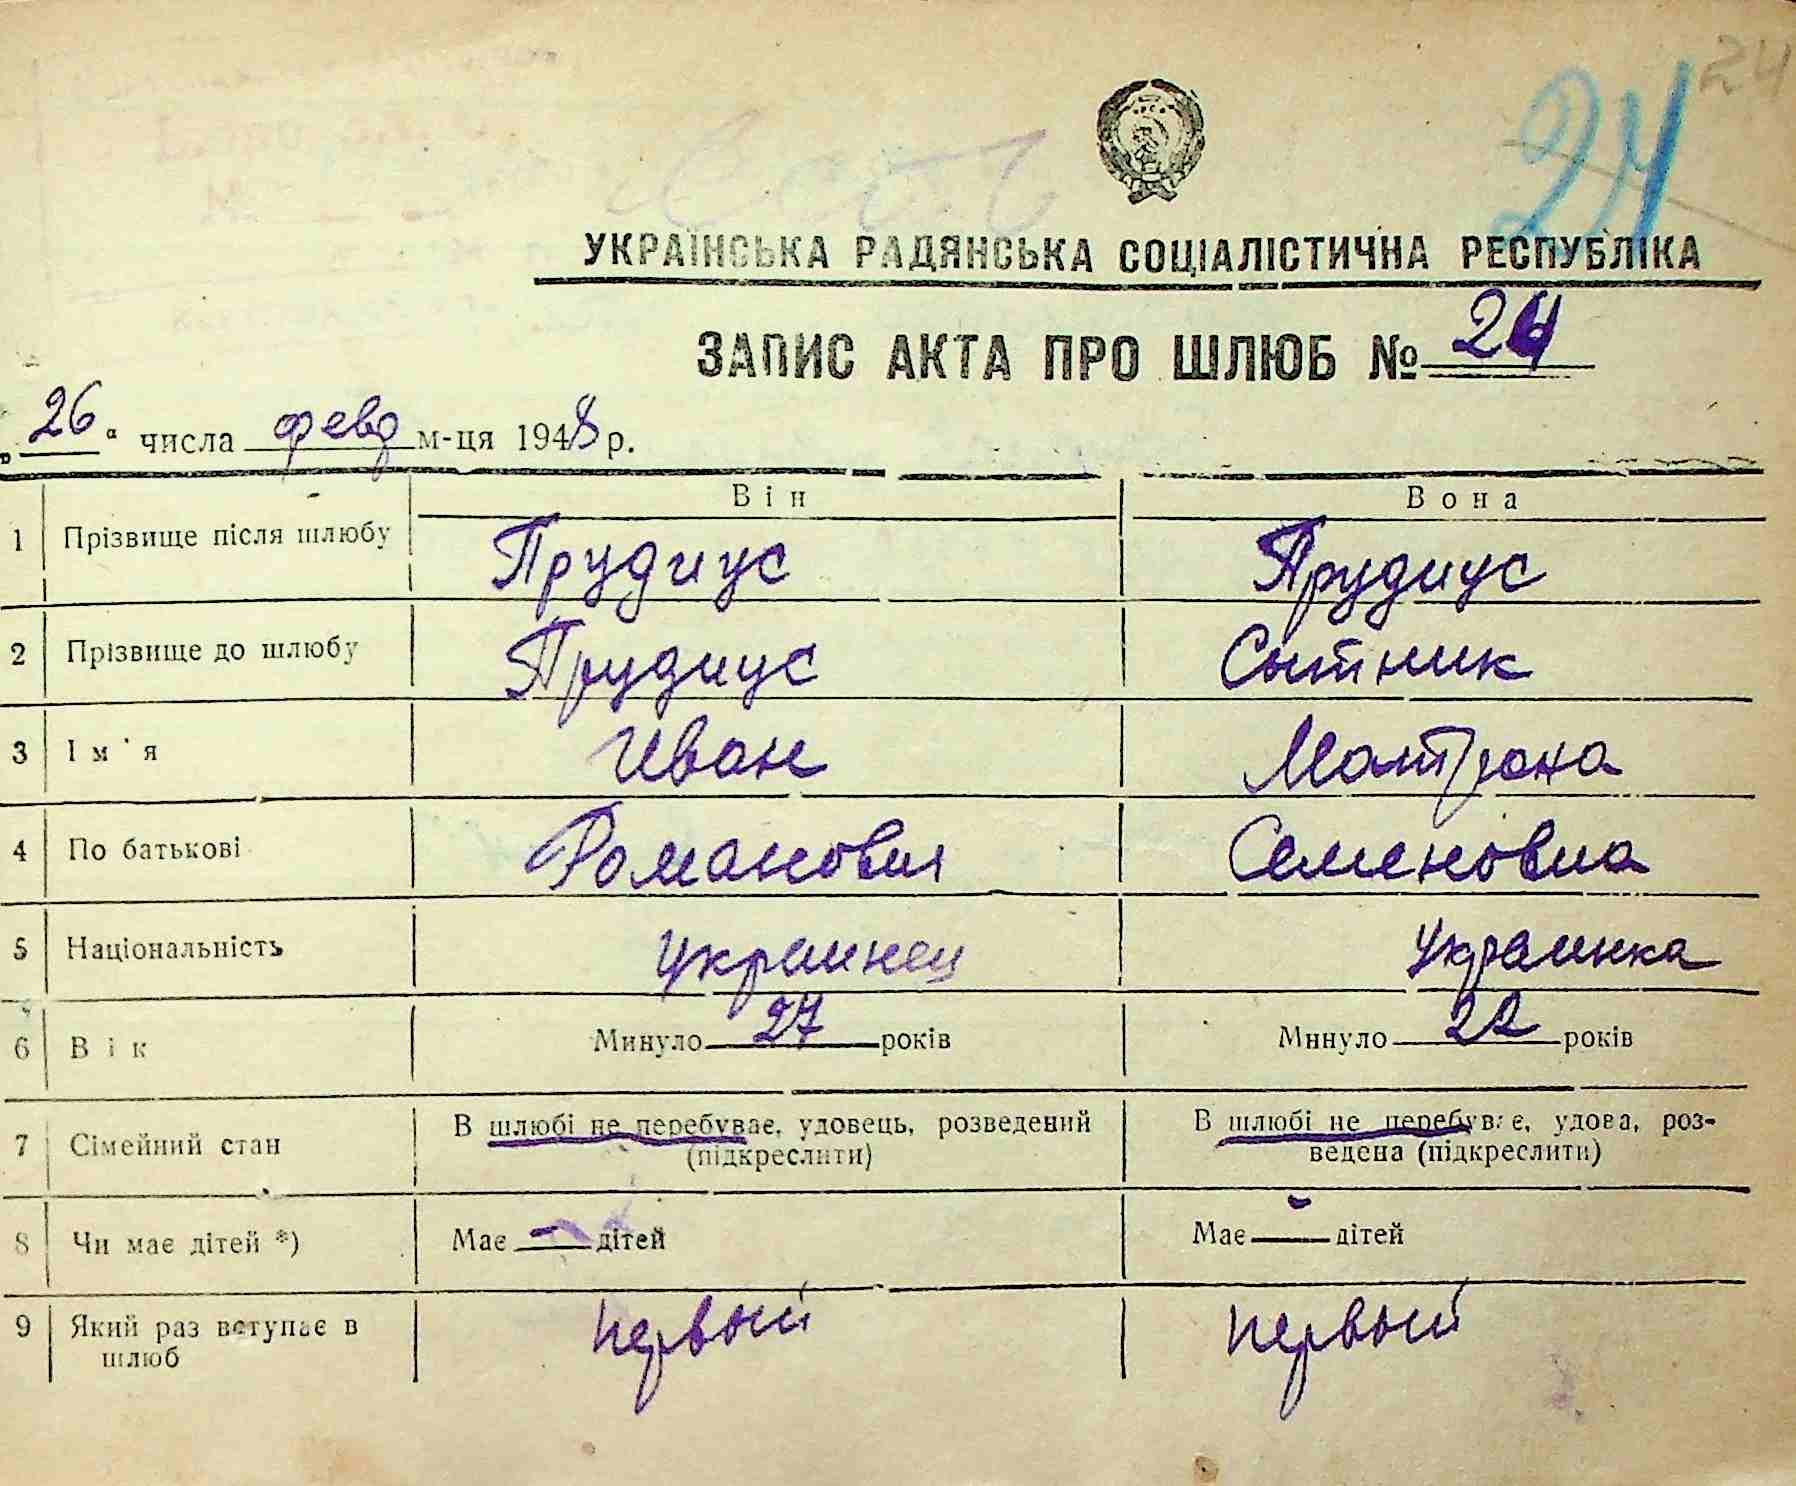 24
24
УКРАЇНСЬКА РАДЯНСЬКА СОЦІАЛІСТИЧНА РЕСПУБЛІКА
ЗАПИС АКТА ПРО ШЛЮБ № 24
„26“ числа февр м-ця 1948 р.
Він Вона
1 Прізвище після шлюбу Прудиус Прудиус
2 Прізвище до шлюбу Прудиус Сытник
3 Ім'я Иван Матрена
4 По батькові Романович Семеновна
5 Національність украинец украинка
6 Вік Минуло 27 років Минуло 22 років
7 Сімейний стан В шлюбі не перебуває, удовець, розведений (підкреслити) В шлюбі не перебуває, удова, роз-
ведена (підкреслити)
8 Чи має дітей *) Має - дітей Має - дітей
9 Який раз вступає в первый первый
шлюб